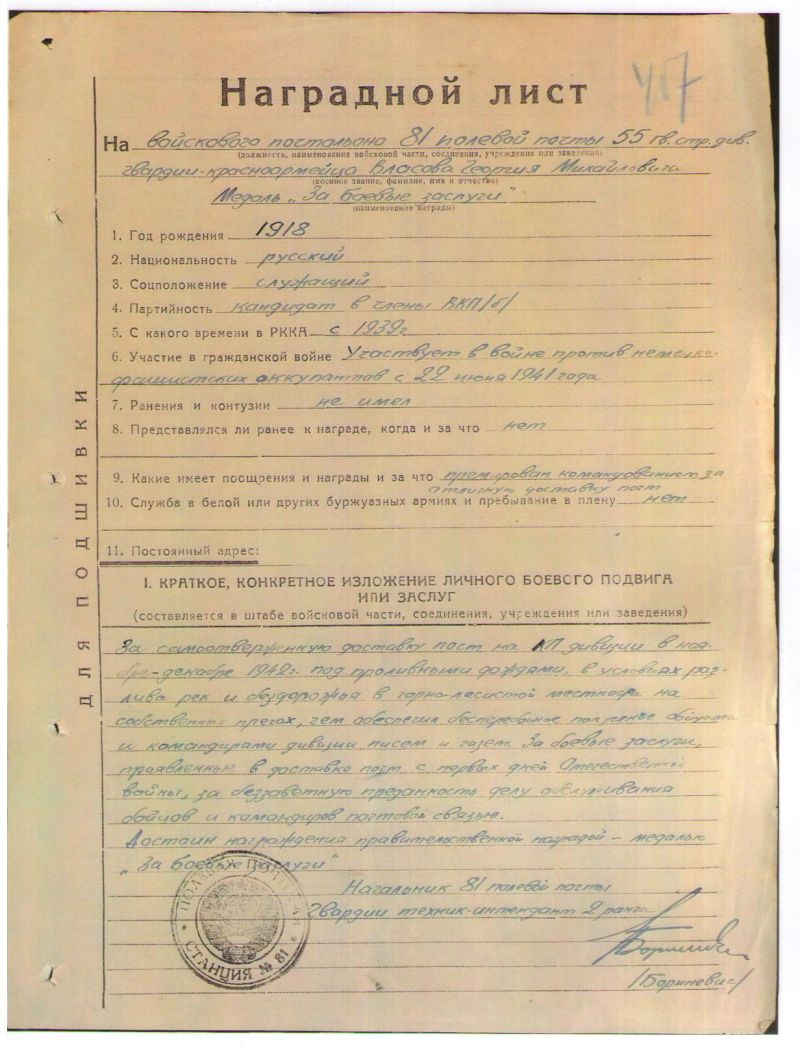 407
Наградной лист
На войскового почтальона 81 полевой почты 55 гв. стр. див.
(должность, наименование войсковой части, соединения, учреждения или заведения)
гвардии-красноармейца Власова Георгия Михайловича
(военное звание, фамилия, имя и отчество)
Медаль „За боевые заслуги"
(наименование награды)
1. Год рождения 1918
2. Национальность русский
3. Соцположение служащий
4. Партийность кандидат в члены ВКП/б/
5. С какого времени в РККА с 1939г
6. Участие в гражданской войне Участвует в войне против немецко-
фашистских оккупантов с 22 июня 1941 года
7. Ранения и контузии не имел
8. Представлялся ли ранее к награде, когда и за что нет
9. Какие имеет поощрения и награды и за что премирован командованием за
отличную доставку почт
10. Служба в белой или других буржуазных армиях и пребывание в плену нет
11. Постоянный адрес:
ДЛЯ ПОДШИВКИ
I. КРАТКОЕ, КОНКРЕТНОЕ ИЗЛОЖЕНИЕ ЛИЧНОГО БОЕВОГО ПОДВИГА
ИЛИ ЗАСЛУГ
(составляется в штабе войсковой части, соединения, учреждения или заведения)
За самоотверженную доставку почт на КП дивизии в ноя-
бре-декабре 1942г. под проливными дождями, в условиях раз-
лива рек и бездорожья в горно-лесистой местности на
собственных плечах, чем обеспечил бесперебойное получение бойцами
и командирами дивизии писем и газет. За боевые заслуги,
проявленные в доставке почт с первых дней Отечественной
войны, за беззаветную преданность делу обслуживания
бойцов и командиров почтовой связью.
Достоин награждения правительственной наградой – медалью
„За боевые заслуги"
Начальник 81 полевой почты
Гвардии техник-интендант 2 ранга
/Бориневич/
ПОЛЕВАЯ ПОЧТОВАЯ
СТАНЦИЯ № 81